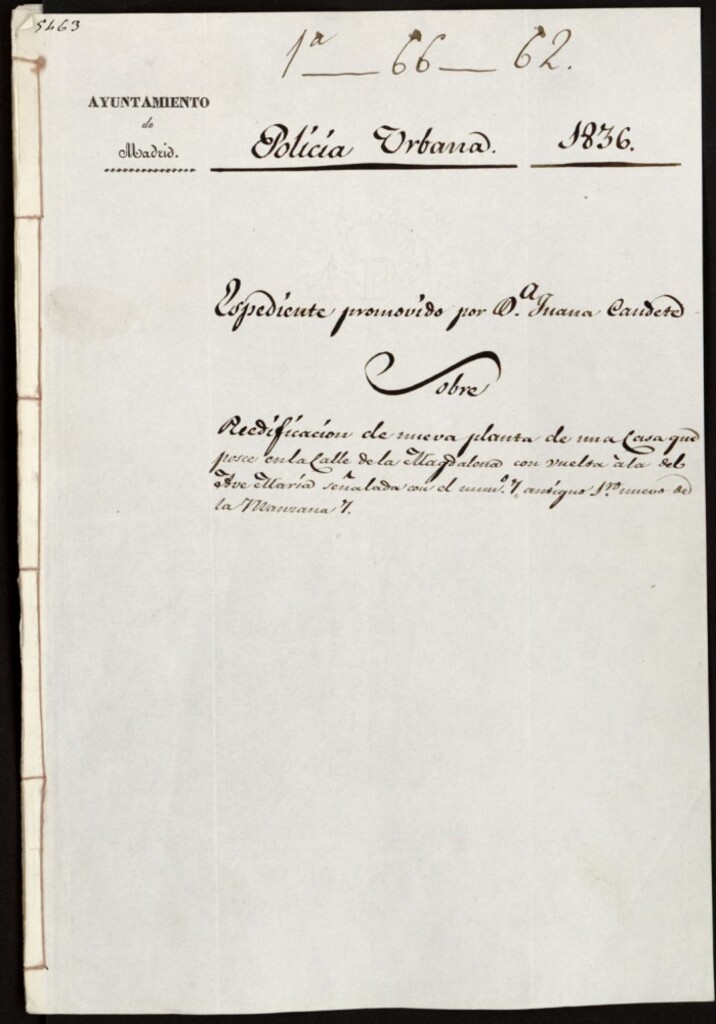 5463
1ª — 66 — 62.
AYUNTAMIENTO
de
Madrid.
Policía Urbana. 1836.
Espediente promovido por D.ª Juana Caudete
Sobre
Reedificacion de nueva planta de una Casa que
posee en la Calle de la Magdalena con vuelta á la del
Ave María señalada con el num.º 7 antiguo 1.º nuevo de
la Manzana 7.